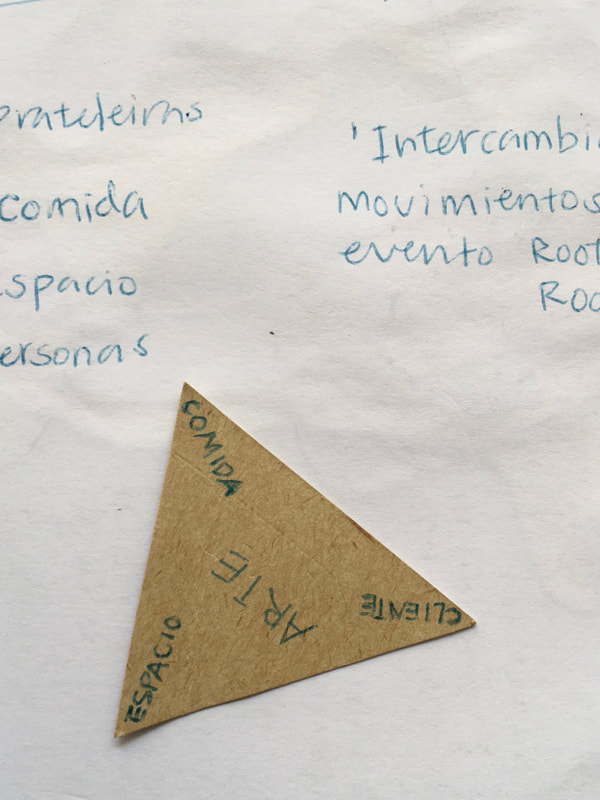 prateleiras
comida
espacio
personas
'Intercambi
movimientos
evento Root
Roo
COMIDA
ARTE
CLIENTE
ESPACIO